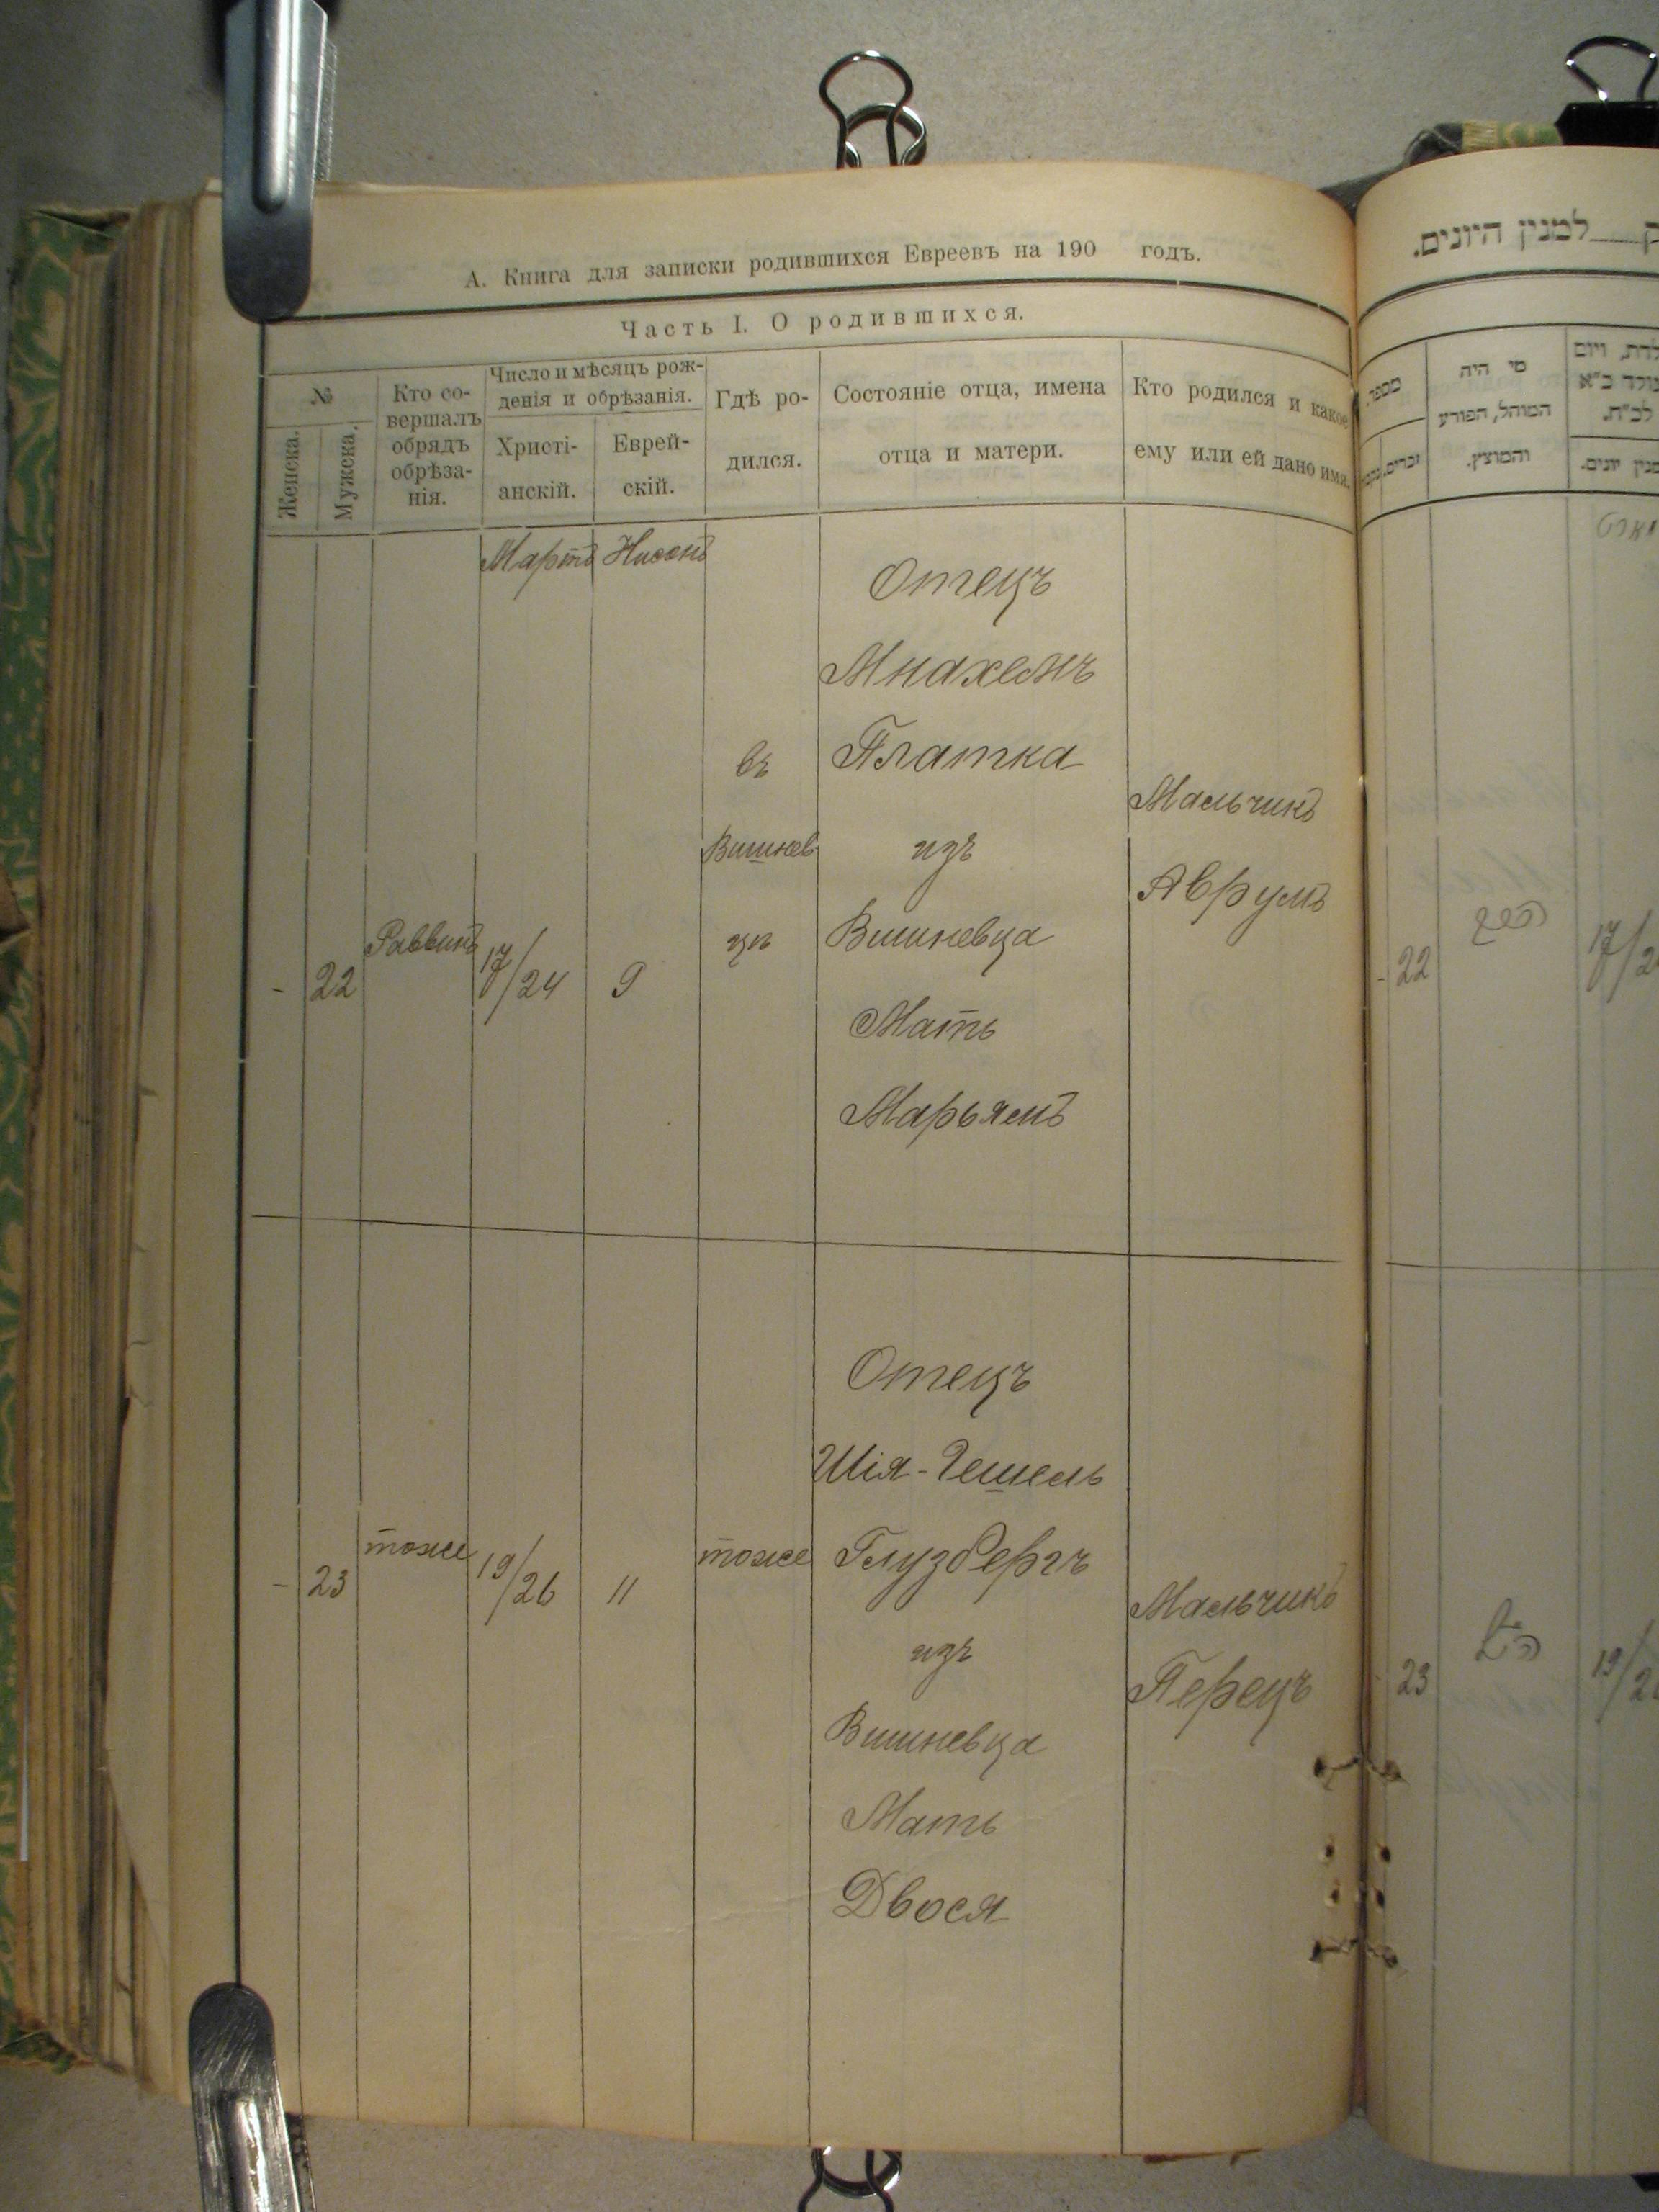 А. Книга для записки родившихся Евреевъ на 190 годъ.
Часть I. О родившихся.
№
Женска.
Мужска.
Кто со-
вершалъ
обрядъ
обрѣза-
нія.
Число и мѣсяцъ рож-
денія и обрѣзанія.
Христі-
анскій.
Еврей-
скій.
Гдѣ ро-
дился.
Состояніе отца, имена
отца и матери.
Кто родился и какое
ему или ей дано имя.
Мартъ Нисонъ
- 22
Раввинъ
17/24
9
въ
Вишнев-
цѣ
Отецъ
Мнахемъ
Платка
изъ
Вишневца
Мать
Марьямъ
Мальчикъ
Аврумъ
- 23
тоже
19/26
11
тоже
Отецъ
Шія-Гешель
Глузбергъ
изъ
Вишневца
Мать
Двося
Мальчикъ
Перецъ
למנין היונים.
מספר.
זכרים.
מי היה
המוהל, הפורע
והמוצץ.
- 22
17/2
23
19/2